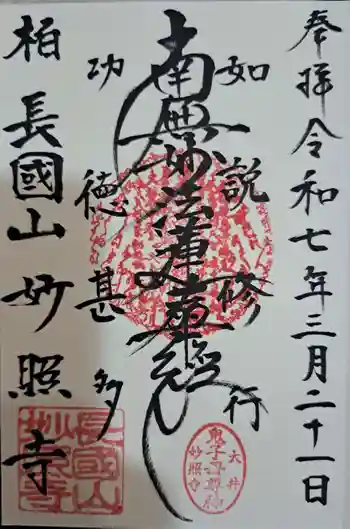 奉拝令和七年三月二十一日
如説修行
南無妙法蓮華経
功徳甚多
柏長國山妙照寺
鬼子母尊神
大井
妙照寺
長國山
妙照寺